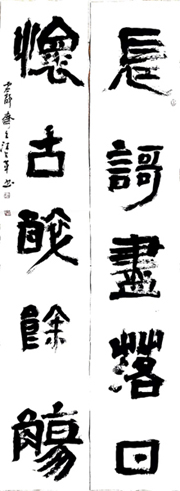 長謌盡落日
懷古酸餘觴